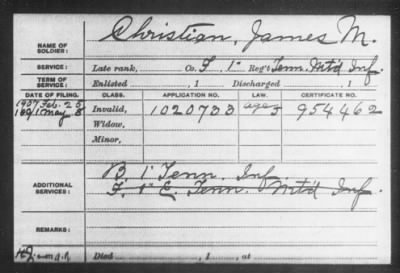 NAME OF SOLDIER: Christian, James M.
SERVICE: Late rank, Co. F 1" Reg't Tenn. Mt'd Inf.
TERM OF SERVICE: Enlisted , 1 Discharged , 1
DATE OF FILING. CLASS. APPLICATION NO. LAW. CERTIFICATE NO.
1907 Feb. 25 Invalid, 1020733 954462
May 8 Widow,
Minor,
ADDITIONAL SERVICES: B. 1" Tenn. Inf.
F. 1st E. Tenn. Mt'd Inf.
REMARKS:
Died , 1 , at